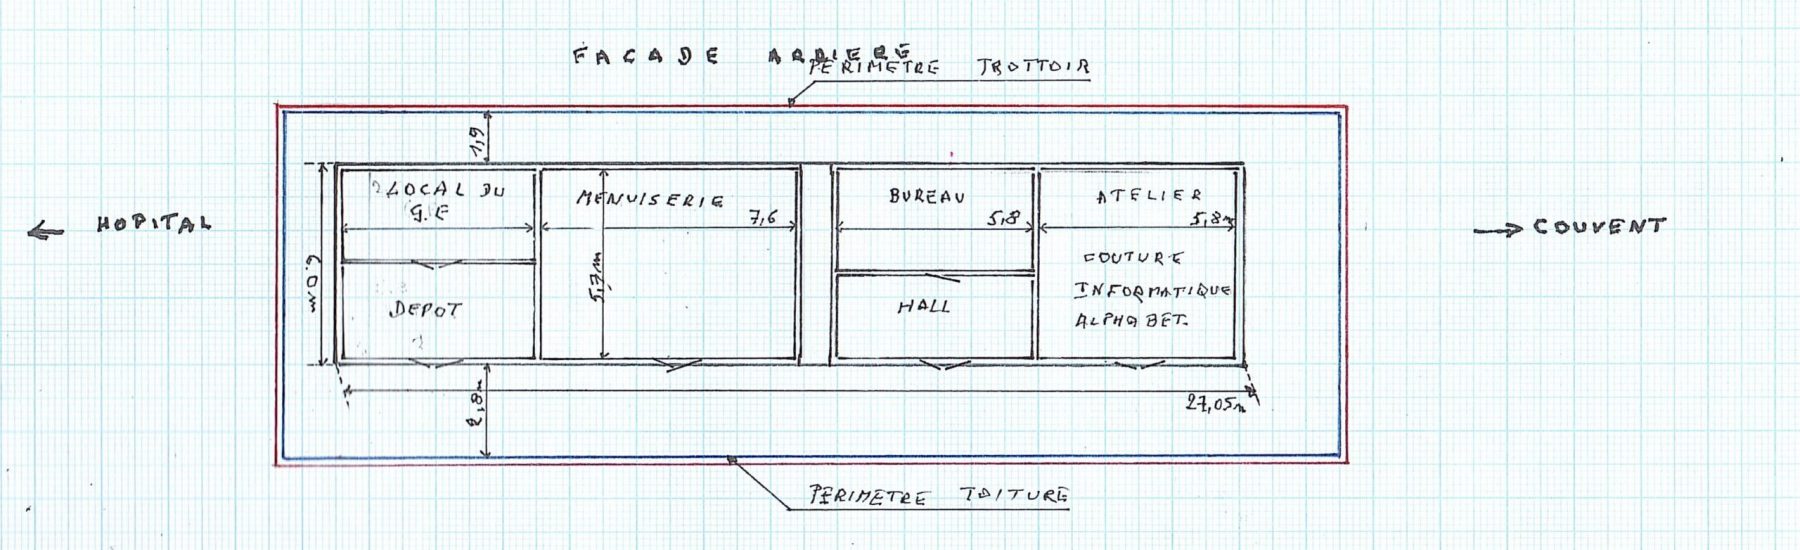 FACADE ARRIERE
PERIMETRE TROTTOIR
1,9
LOCAL DU
G.E
MENUISERIE
7,6
BUREAU
5,8
ATELIER
5,8m
HOPITAL
COUVENT
6,0m
5,7m
COUTURE
INFORMATIQUE
ALPHABET.
DEPOT
HALL
2,8m
27,05m
PERIMETRE TOITURE